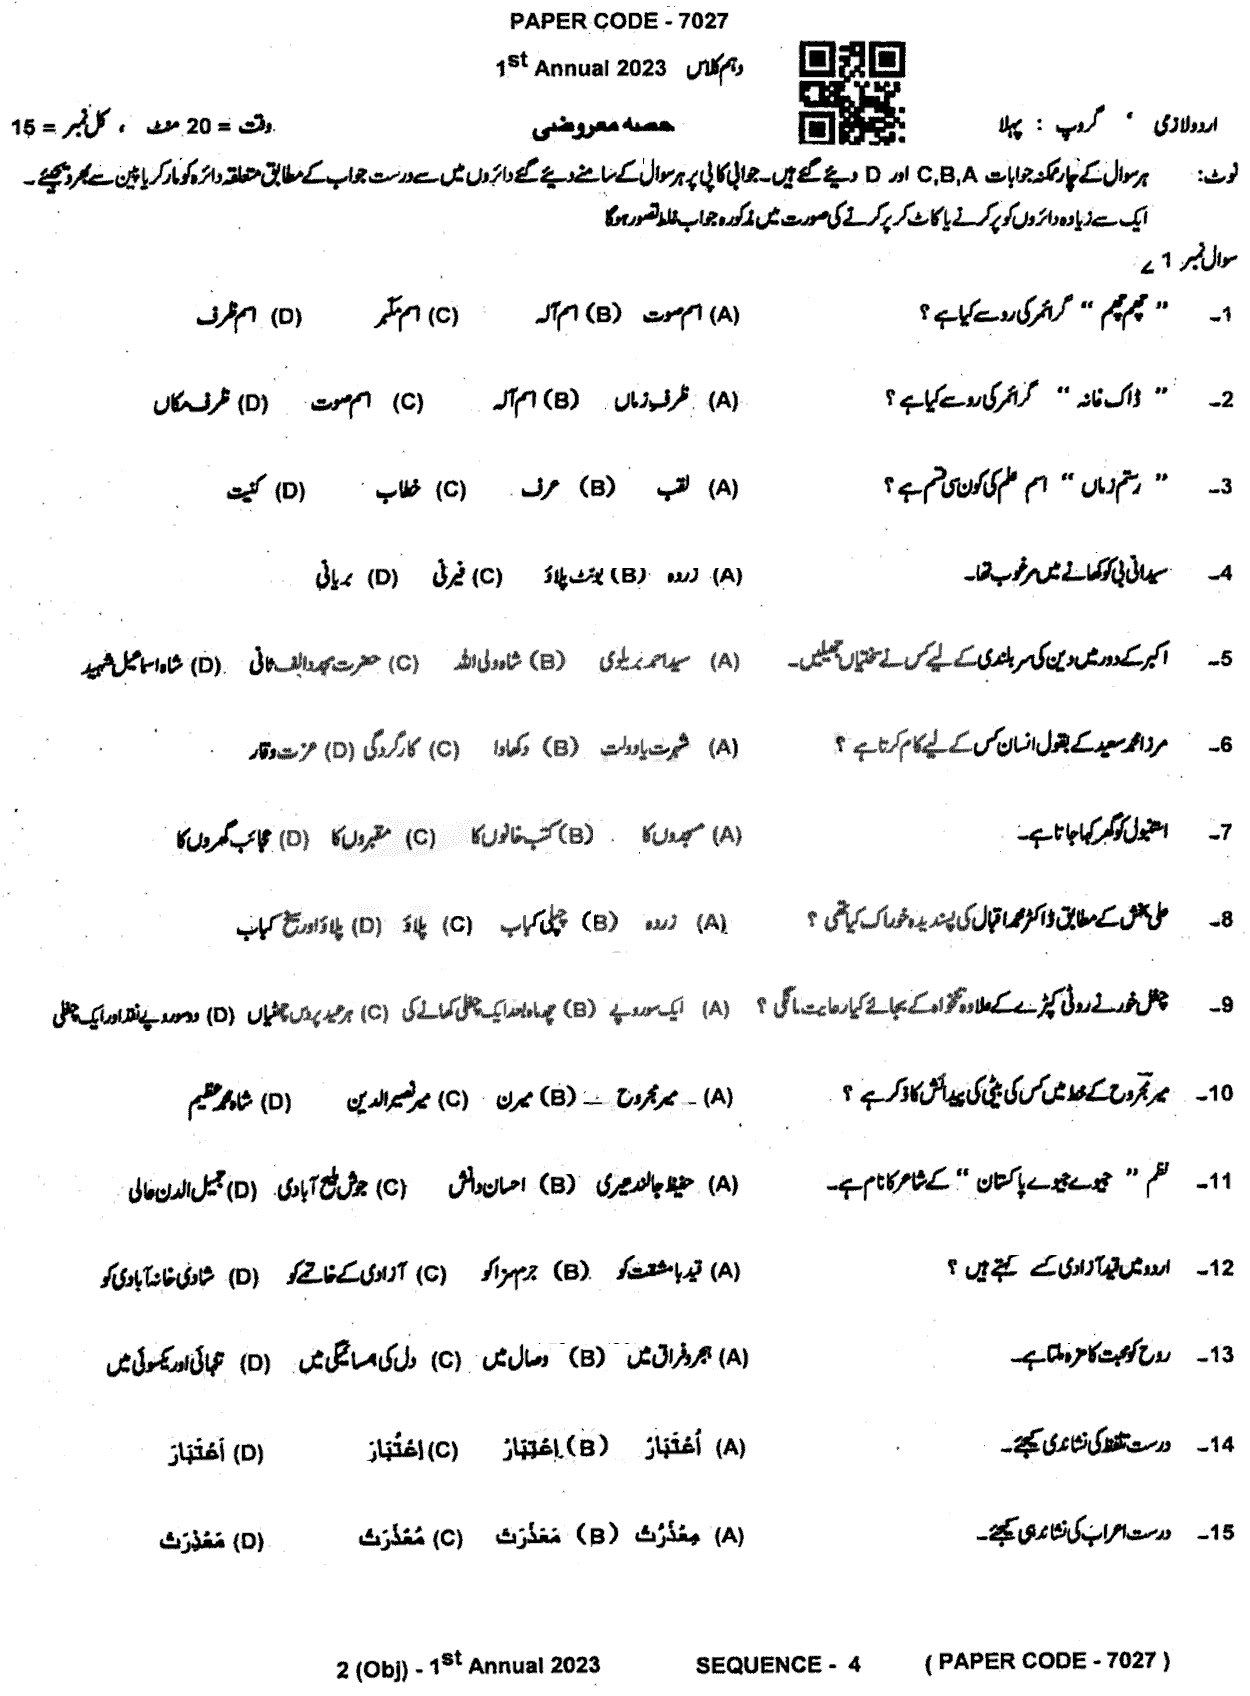 PAPER CODE - 7027
1st Annual 2023 دہم کلاس
اردو لازمی ، گروپ : پہلا حصہ معروضی وقت = 20 منٹ ، کل نمبر = 15
نوٹ: ہر سوال کے چار ممکنہ جوابات C,B,A اور D دیئے گئے ہیں۔ جوابی کاپی پر ہر سوال کے سامنے دیئے گئے دائروں میں سے درست جواب کے مطابق متعلقہ دائرہ کو مارکر یا پین سے بھر دیجئے۔
ایک سے زیادہ دائروں کو پر کرنے یا کاٹ کر پر کرنے کی صورت میں مذکورہ جواب غلط تصور ہوگا
سوال نمبر 1
1۔ " چھم چھم " گرائمر کی رو سے کیا ہے ؟ (A) اسم صوت (B) اسم آلہ (C) اسم مکبر (D) اسم ظرف
2۔ " ڈاک خانہ " گرائمر کی رو سے کیا ہے ؟ (A) ظرف زماں (B) اسم آلہ (C) اسم صوت (D) ظرف مکاں
3۔ " رستم زماں " اسم علم کی کون سی قسم ہے ؟ (A) لقب (B) عرف (C) خطاب (D) کنیت
4۔ سیدانی بی کو کھانے میں مرغوب تھا۔ (A) زردہ (B) بونٹ پلاؤ (C) فیرنی (D) بریانی
5۔ اکبر کے دور میں دین کی سربلندی کے لیے کس نے سختیاں جھیلیں۔ (A) سید احمد بریلوی (B) شاہ ولی اللہ (C) حضرت مجدد الف ثانی (D) شاہ اسماعیل شہید
6۔ مرزا محمد سعید کے بقول انسان کس کے لیے کام کرتا ہے ؟ (A) شہرت یا دولت (B) دکھاوا (C) کارکردگی (D) عزت و وقار
7۔ استنبول کو گھر کہا جاتا ہے۔ (A) مسجدوں کا (B) کتب خانوں کا (C) مقبروں کا (D) عجائب گھروں کا
8۔ علی بخش کے مطابق ڈاکٹر محمد اقبال کی پسندیدہ خوراک کیا تھی ؟ (A) زردہ (B) چپلی کباب (C) پلاؤ (D) پلاؤ اور سیخ کباب
9۔ چغل خور نے روٹی کپڑے کے علاوہ تنخواہ کے بجائے کیا رعایت مانگی ؟ (A) ایک سو روپے (B) چھ ماہ بعد ایک چغلی کھانے کی (C) ہر عید پر دس چھٹیاں (D) دو سو روپے نقد اور ایک چغلی
10۔ میر مجروح کے خط میں کس کی بیٹی کی پیدائش کا ذکر ہے ؟ (A) میر مجروح (B) میرن (C) میر نصیر الدین (D) شاہ محمد عظیم
11۔ نظم " جیوے جیوے پاکستان " کے شاعر کا نام ہے۔ (A) حفیظ جالندھری (B) احسان دانش (C) جوش ملیح آبادی (D) جمیل الدن عالی
12۔ اردو میں قید آزادی کسے کہتے ہیں ؟ (A) قید با مشقت کو (B) جرم سزا کو (C) آزادی کے خاتمے کو (D) شادی خانہ آبادی کو
13۔ روح کو محبت کا مزہ ملتا ہے۔ (A) ہجر و فراق میں (B) وصال میں (C) دل کی ہمسائیگی میں (D) تنہائی اور یکسوئی میں
14۔ درست تلفظ کی نشاندہی کیجئے۔ (A) اُعْتَبَارْ (B) اِعْتِبَارْ (C) اِعْتُبَارْ (D) اَعْتَبَارْ
15۔ درست اعراب کی نشاندہی کیجئے۔ (A) مِعْذَرُتْ (B) مَعَذَرَتْ (C) مُعْذَرَتْ (D) مَعْذِرَتْ
2 (Obj) - 1st Annual 2023 SEQUENCE - 4 ( PAPER CODE - 7027 )